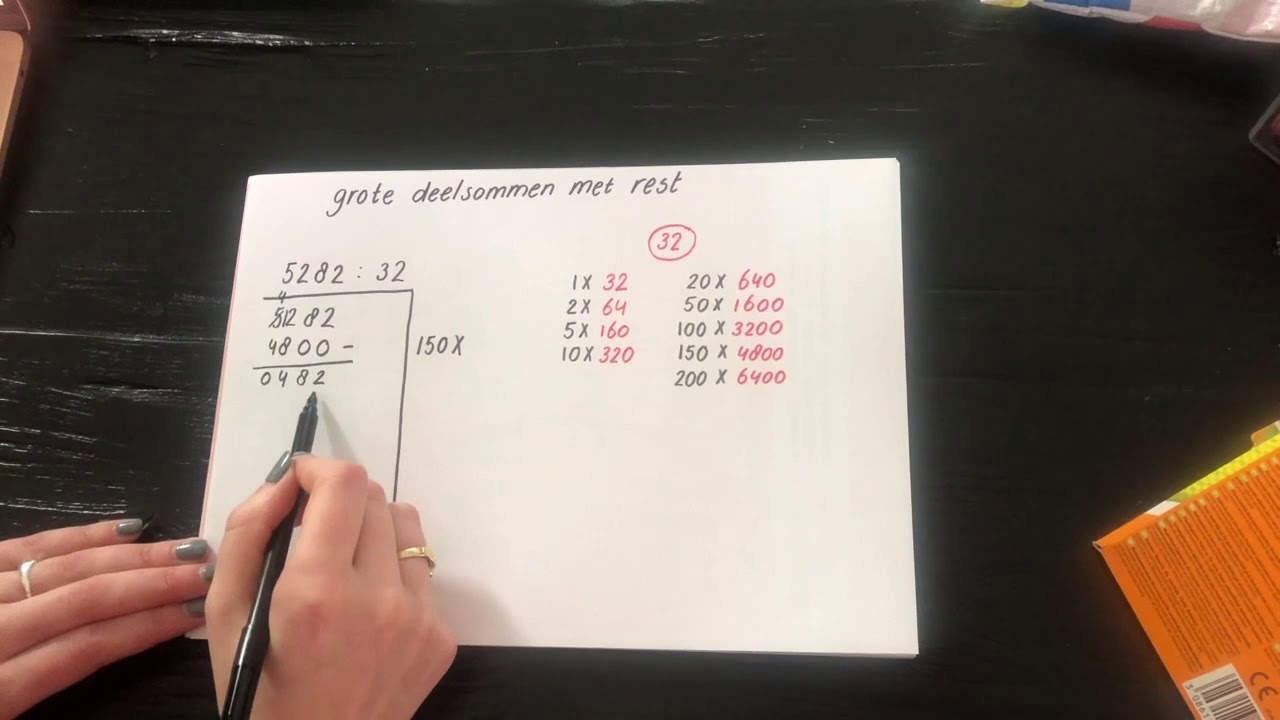 grote deelsommen met rest
5282 : 32
4
51282
4800 -
0482
150X
32
1X 32
2X 64
5X 160
10X 320
20X 640
50X 1600
100X 3200
150X 4800
200X 6400
CE